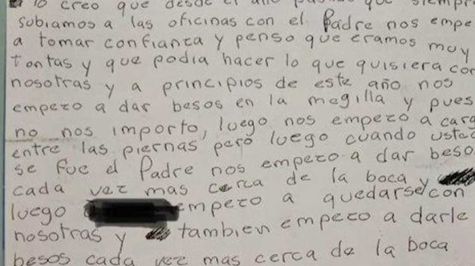 lo creo que desde el año pasado que siempre
subiamos a las oficinas con el Padre nos empe
a tomar confianza y penso que eramos muy
tontas y que podia hacer lo que quisiera con
nosotras y a principios de este año nos
empezo a dar besos en la megilla y pues
no nos importo, luego nos empezo a carg
entre las piernas pero luego cuando usted
se fue el Padre nos empezo a dar beso
cada vez mas cerca de la boca y
luego empezo a quedarse con
nosotras y tambien empezo a darle
besos cada vez mas cerca de la boca